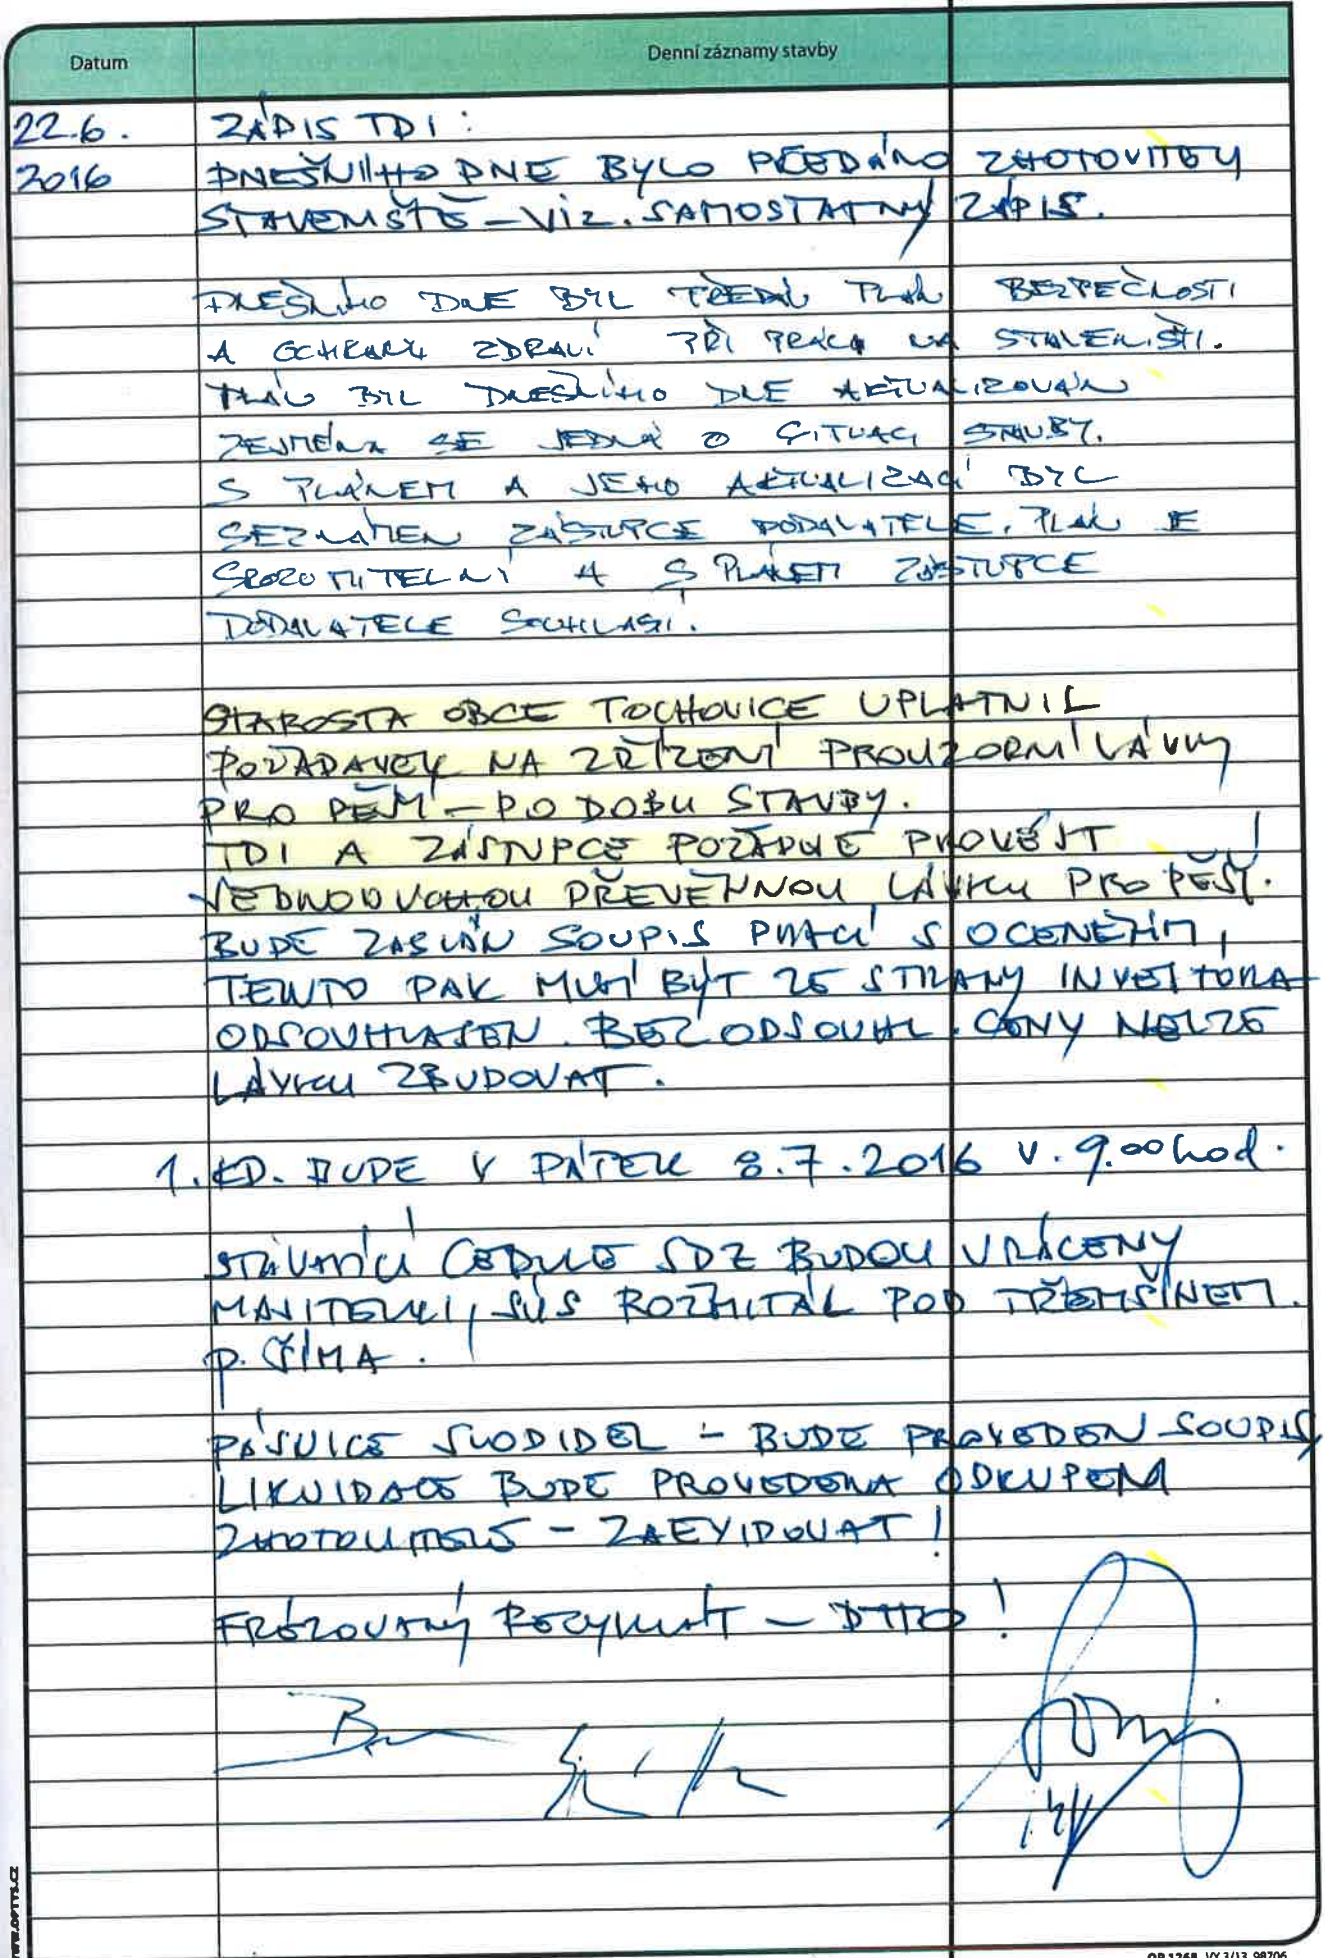 Datum
Denní záznamy stavby
22.6.
2016
ZÁPIS TDI:
DNEŠNÍHO DNE BYLO PŘEDÁNO ZHOTOVITELI
STAVENIŠTĚ – VIZ. SAMOSTATNÝ ZÁPIS.
DNEŠNÍHO DNE BYL PŘEDÁN PLÁN BEZPEČNOSTI
A OCHRANY ZDRAVÍ PŘI PRÁCI NA STAVENIŠTI.
PLÁN BYL DNEŠNÍHO DNE AKTUALIZOVÁN
ZEJMÉNA SE JEDNÁ O SITUACI STAVBY.
S PLÁNEM A JEHO AKTUALIZACÍ BYL
SEZNÁMEN ZÁSTUPCE DODAVATELE. PLÁN JE
SROZUMITELNÝ A S PLÁNEM ZÁSTUPCE
DODAVATELE SOUHLASÍ.
STAROSTA OBCE TOCHOVICE UPLATNIL
POŽADAVEK NA ZŘÍZENÍ PROVIZORNÍ LÁVKY
PRO PĚŠÍ – PO DOBU STAVBY.
TDI A ZÁSTUPCE POŽADUJE PROVÉST
JEDNODUCHOU DŘEVĚNNOU LÁVKU PRO PĚŠÍ.
BUDE ZASLÁN SOUPIS PRACÍ S OCENĚNÍM,
TENTO PAK MUSÍ BÝT ZE STRANY INVESTORA
ODSOUHLASEN. BEZ ODSOUHL. CENY NELZE
LÁVKU ZBUDOVAT.
1. KD. BUDE V PÁTEK 8.7.2016 V. 9.00 hod.
STÁVAJÍCÍ CEDULE SDZ BUDOU VRÁCENY
MAJITELI, SÚS ROŽMITÁL POD TŘEMŠÍNEM.
p. ČÍMA.
PÁSNICE SVODIDEL – BUDE PROVEDEN SOUPIS,
LIKVIDACE BUDE PROVEDENA ODKUPEM
ZHOTOVITELE – ZAEVIDOVAT!
FRÉZOVANÝ RECYKLÁT – DTTO!
www.optys.cz
OP 1268 VY 3/13 98706